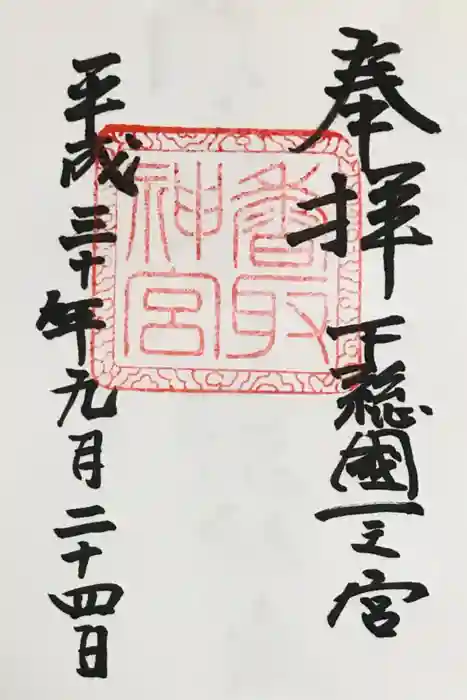 奉拝
下総國一之宮
香取
神宮
平成三十年九月二十四日